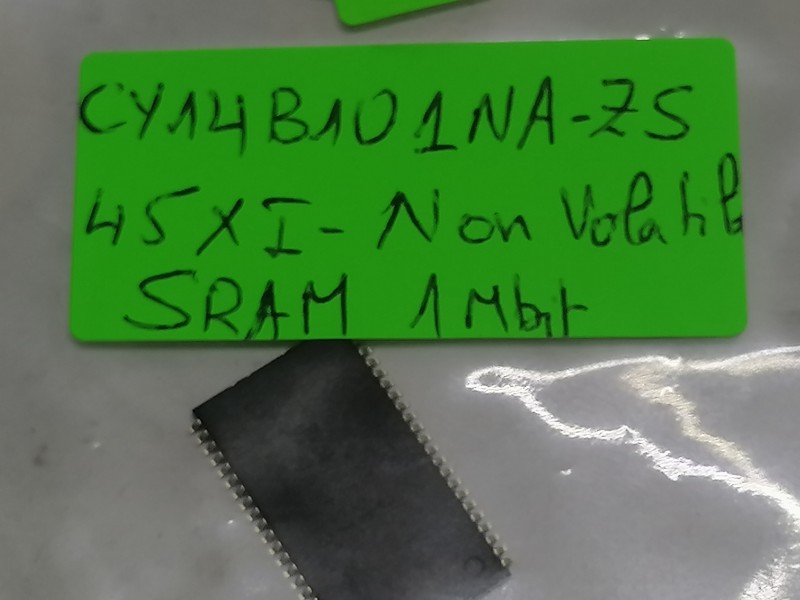 CY14B101NA-ZS
45XI- Non Volatile
SRAM 1Mbit